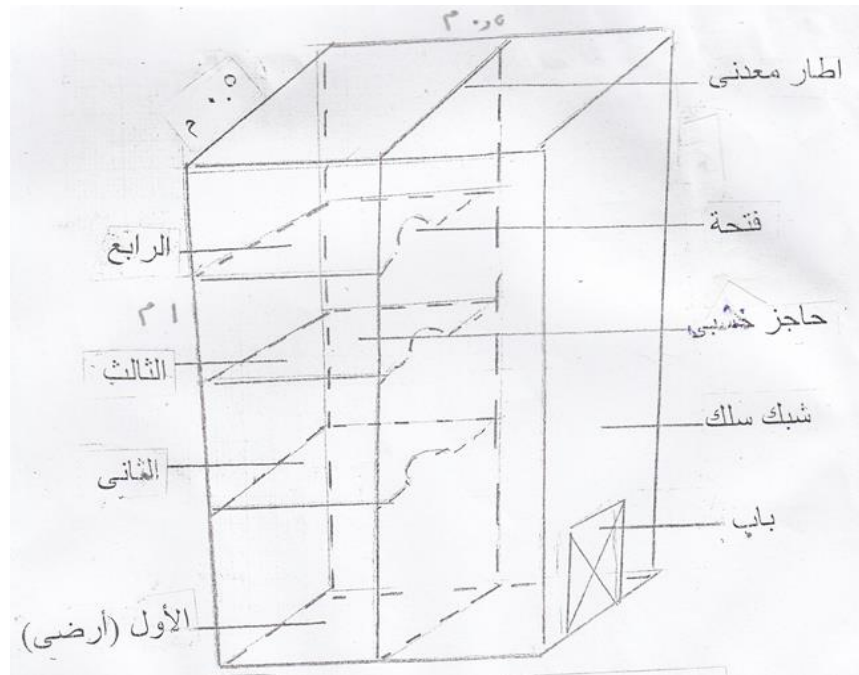 اطار معدنى
فتحة
الرابع
١ م
حاجز خشبى
الثالث
شبك سلك
الثانى
باب
الأول (أرضى)